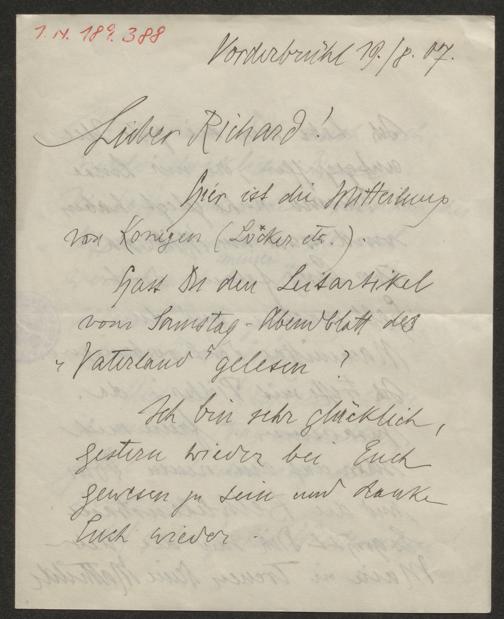 I.N. 189.388
Vorderbrühl 19./8. 07.
Lieber Richard!
Hier ist die Mitteilung
von Konegen (Löcker etc.).
Hast Du den Leitartikel
vom Samstag-Abendblatt des
"Vaterland" gelesen?
Ich bin sehr glücklich,
gestern wieder bei Euch
gewesen zu sein und danke
Euch wieder.